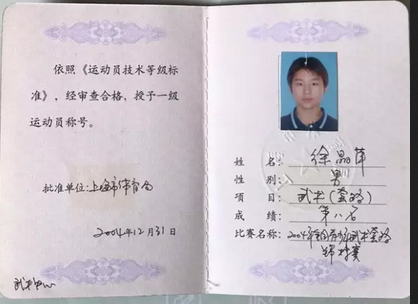 依照《运动员技术等级标
准》，经审查合格，授予一级
运动员称号。
批准单位:上海市体育局
2004年12月31日
姓名: 徐晶萍
性别: 男
项目: 武术(套路)
成绩: 第八名
比赛名称: 2004年全国青少年武术套路
锦标赛